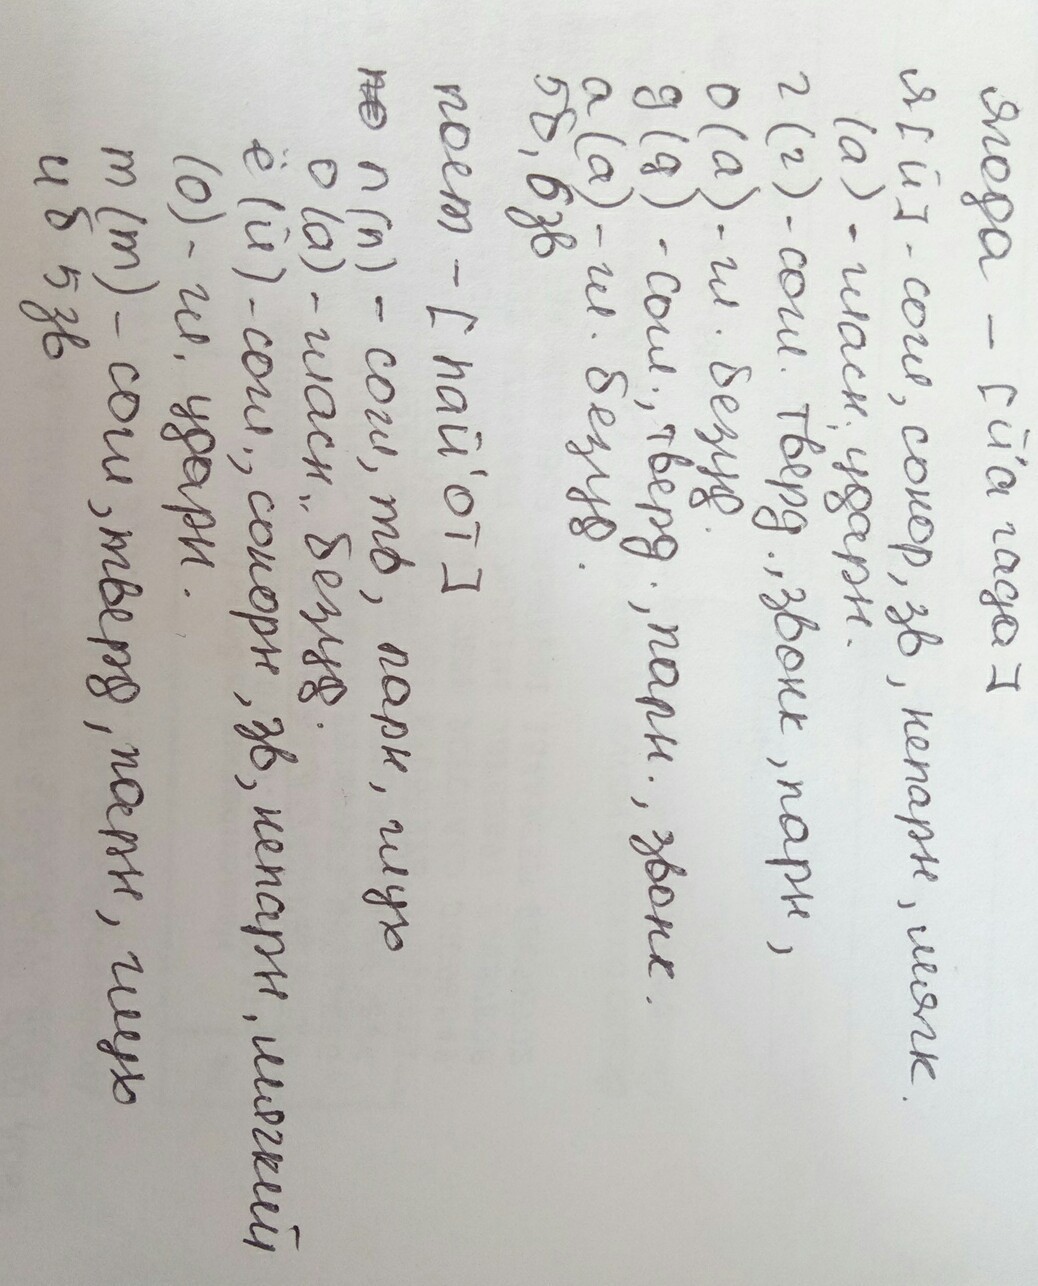 ягода – [й'а гада]
я [й] - согл, сонор, зв, непарн, мягк.
(а) - гласн, ударн.
г (г) - согл. тверд., звонк, парн,
о (а) - гл. безуд.
д (д) - согл., тверд., парн., звонк.
а (а) - гл. безуд.
5б, 6зв
поет – [пай'от]
п (п) - согл, тв, парн, глух
о (а) - гласн,, безуд.
ё (й) - согл., сонорн, зв, непарн, мягкий
(о) - гл, ударн.
т (т) - согл, тверд, парн, глух
4б 5зв